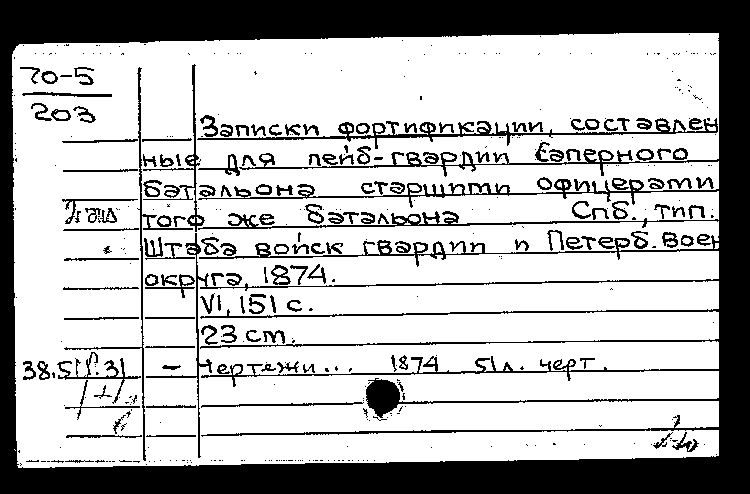 70-5
203
Записки фортификации, составлен
ные для лейб-гвардии Саперного
батальона старшими офицерами
того же батальона Спб., тип.
Штаба войск гвардии и Петерб. воен
округа, 1874.
VI, 151 с.
23 см.
— Чертежи... 1874 51 л. черт.